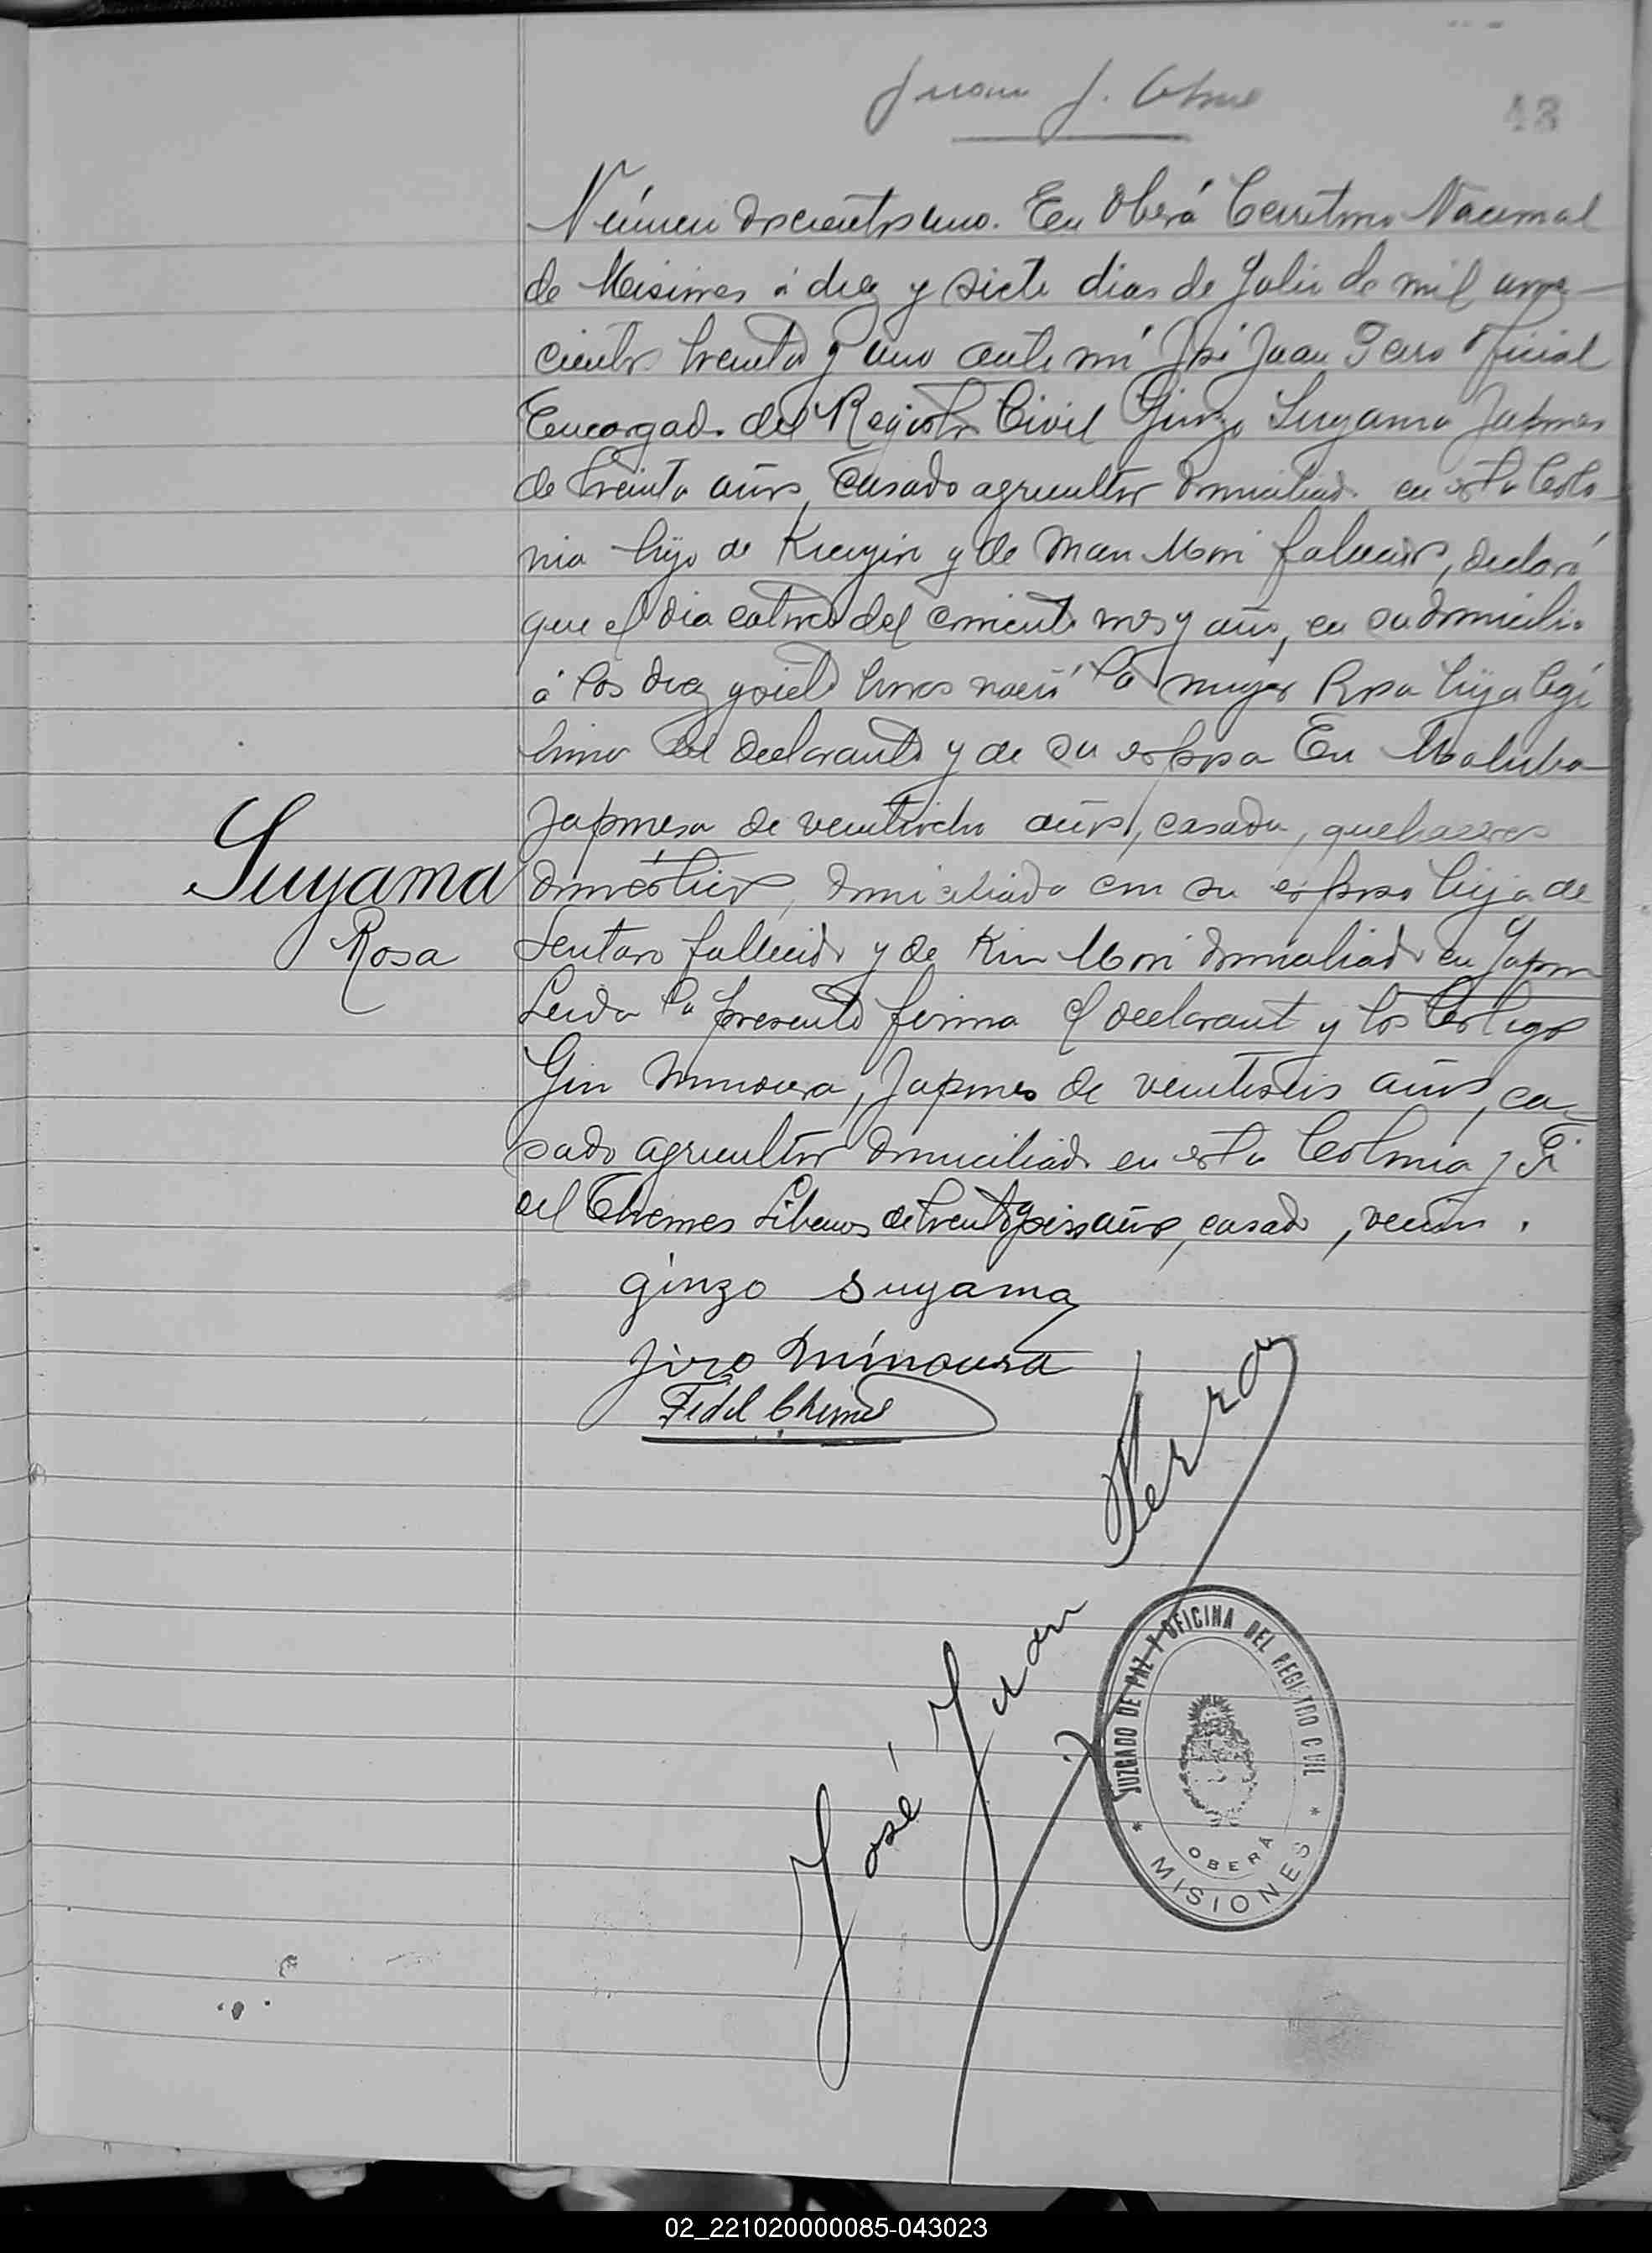 Juan J.
43
Número doscientos uno. En Oberá Territorio Nacional
de Misiones á diez y siete dias de Julio de mil nove-
cientos treinta y uno ante mí José Juan Pero Oficial
Encargado del Registro Civil Ginzo Suyama Japones
de treinta años, casado agricultor domiciliado en esta Colo-
nia hijo de y de Mori fallecidos, declaró
que el dia catorce del corriente mes y año, en su domicilio
á las diez y siete horas nació la mujer Rosa hija legí
tima del declarante y de su esposa En
Japonesa de veintiocho años, casada, quehaceres
domésticos, domiciliada con su esposo hija de
Sentaro fallecido y de Kin Mori domiciliado en Japon
Leida la presente firma el declarante y los testigos
Gin Minoura, Japones de veintiseis años, ca-
sado agricultor domiciliado en esta Colonia y Fi
del Chemes Libanes de treinta y seis años, casado, vecino.
Suyama
Rosa
ginzo suyama
Jiro Minoura
Fidel Chemes
José Juan Perro
JUZGADO DE PAZ Y OFICINA DEL REGISTRO CIVIL
OBERÁ
* MISIONES *
02_221020000085-043023